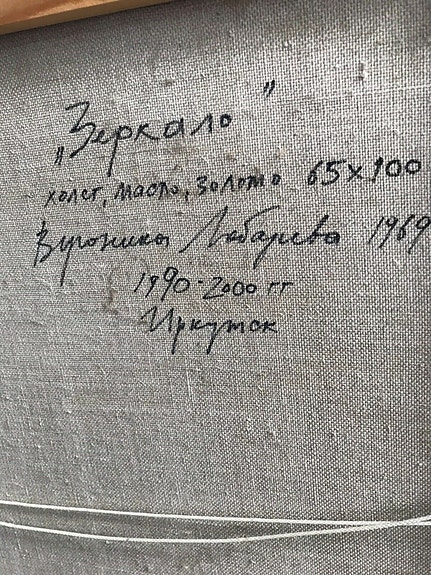 „Зеркало"
холст, масло, золото 65x100
Вероника Лобарева 1969
1990-2000 гг
Иркутск